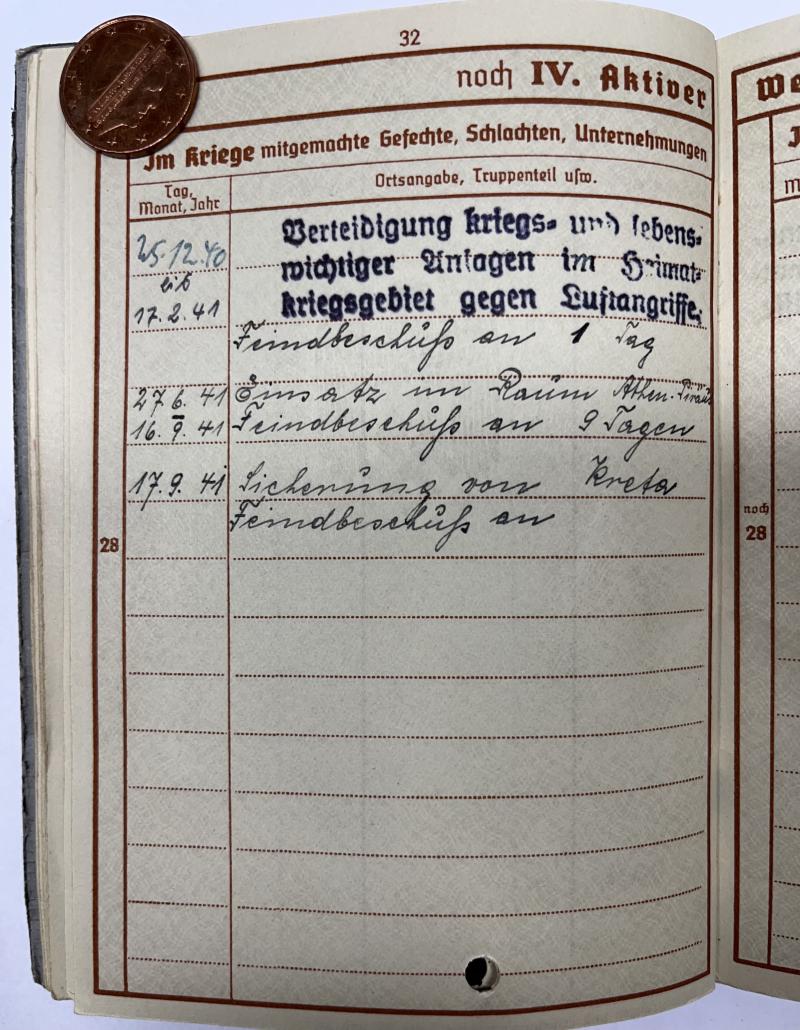 32
noch IV. Aktiver
We
Im Kriege mitgemachte Gefechte, Schlachten, Unternehmungen
Tag,
Monat, Jahr
Ortsangabe, Truppenteil usw.
25.12.40
bis
17.2.41
Verteidigung kriegs- und lebens-
wichtiger Anlagen im Heimat-
kriegsgebiet gegen Luftangriffe.
Feindbeschuß an 1 Tag
27 6. 41 Einsatz im Raum Athen-Piräus
16. 9. 41 Feindbeschuß an 9 Tagen
17. 9. 41 Sicherung von Kreta
Feindbeschuß an
28
noch
28